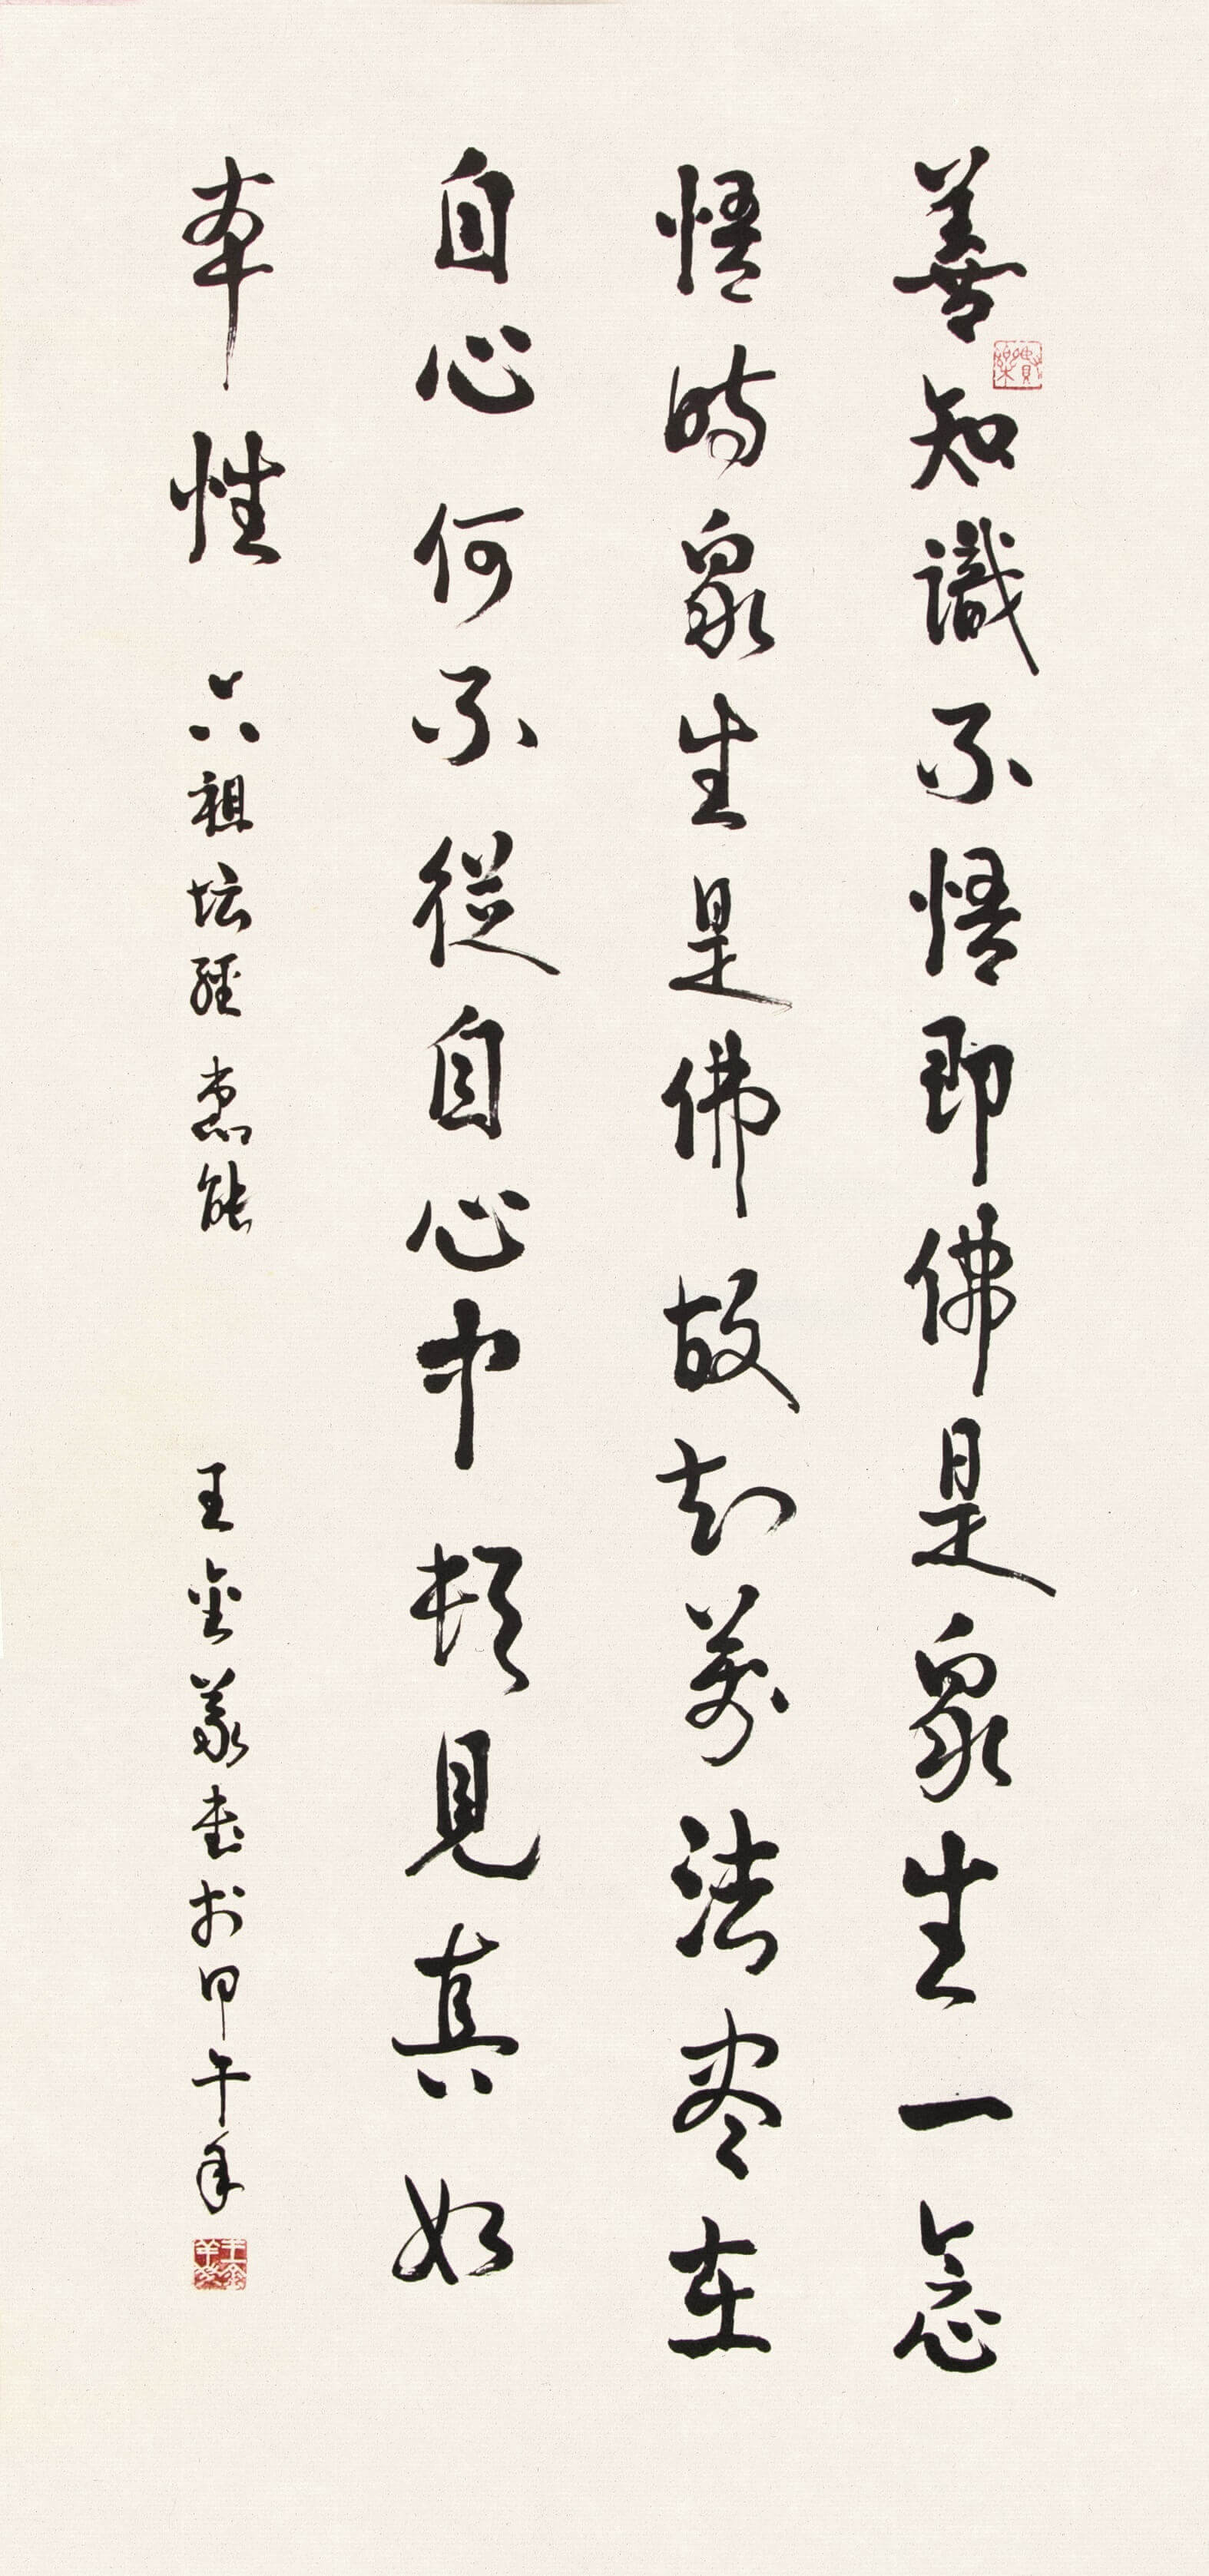 善知識不悟即佛是衆生一念
悟時衆生是佛故知萬法盡在
自心何不從自心中頓見真如
本性 六祖坛經 惠能 王金義書於甲午年
王金義